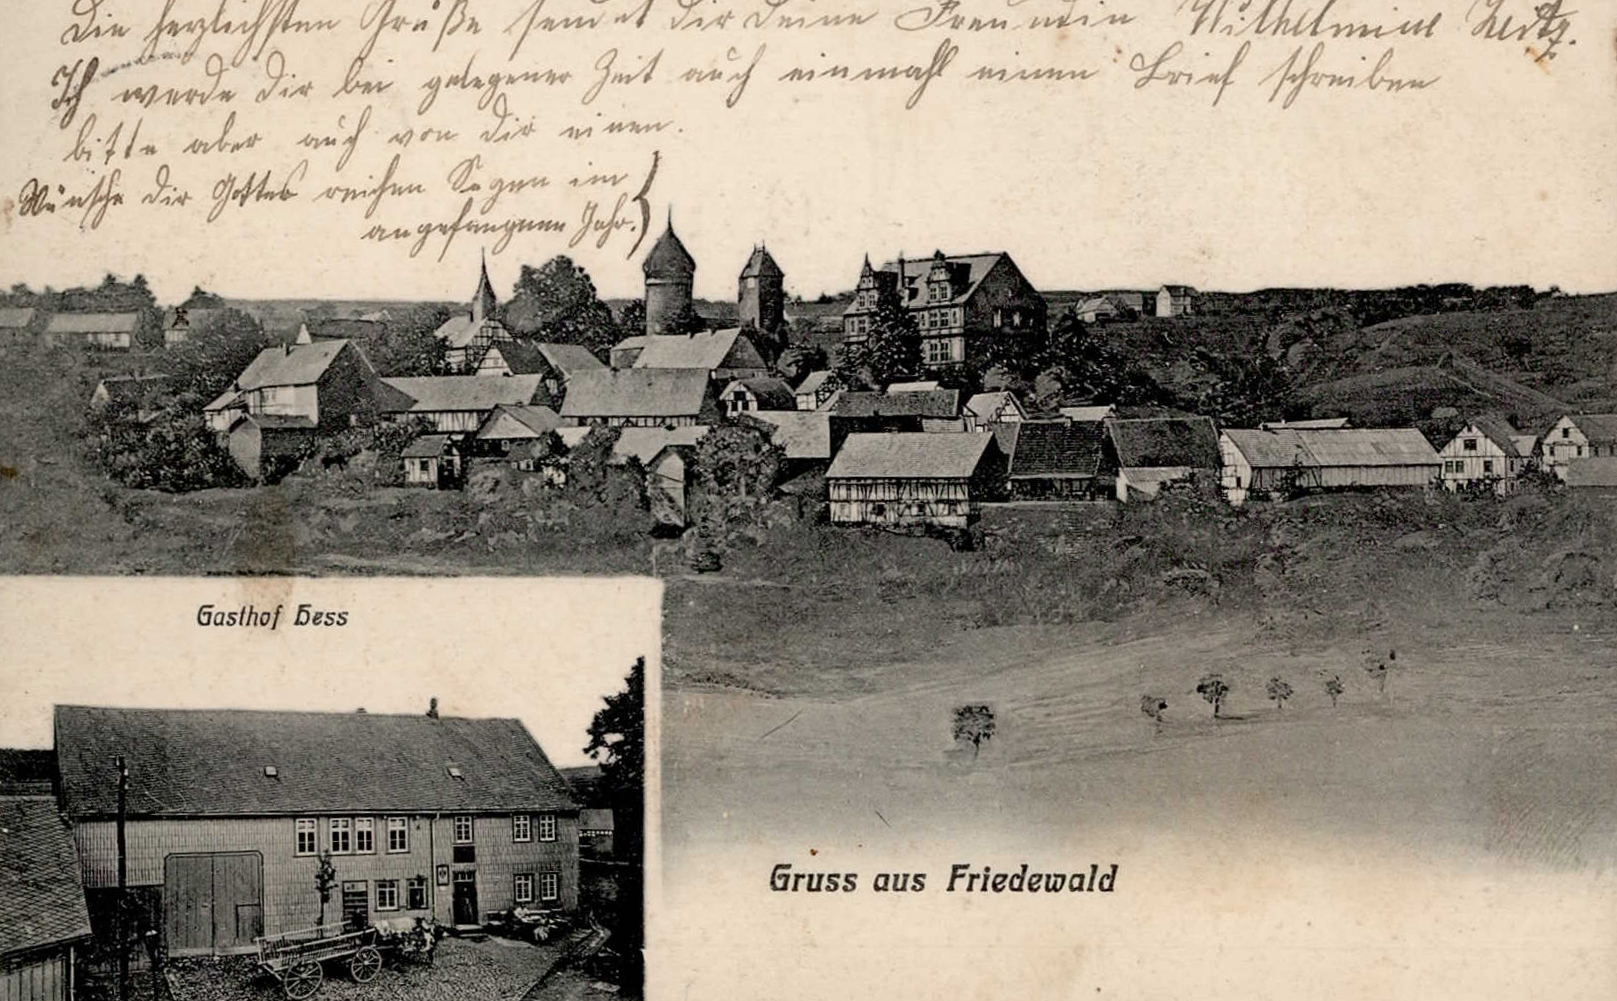 Die herzlichsten Grüße sendet dir deine Freundin Wilhelmine
Ich werde dir bei gelegener Zeit auch einmahl einen Brief schreiben
bitte aber auch von dir einen.
Wünsche dir Gottes reichen Segen im
angefangenen Jahr.
Gasthof Hess
Gruss aus Friedewald